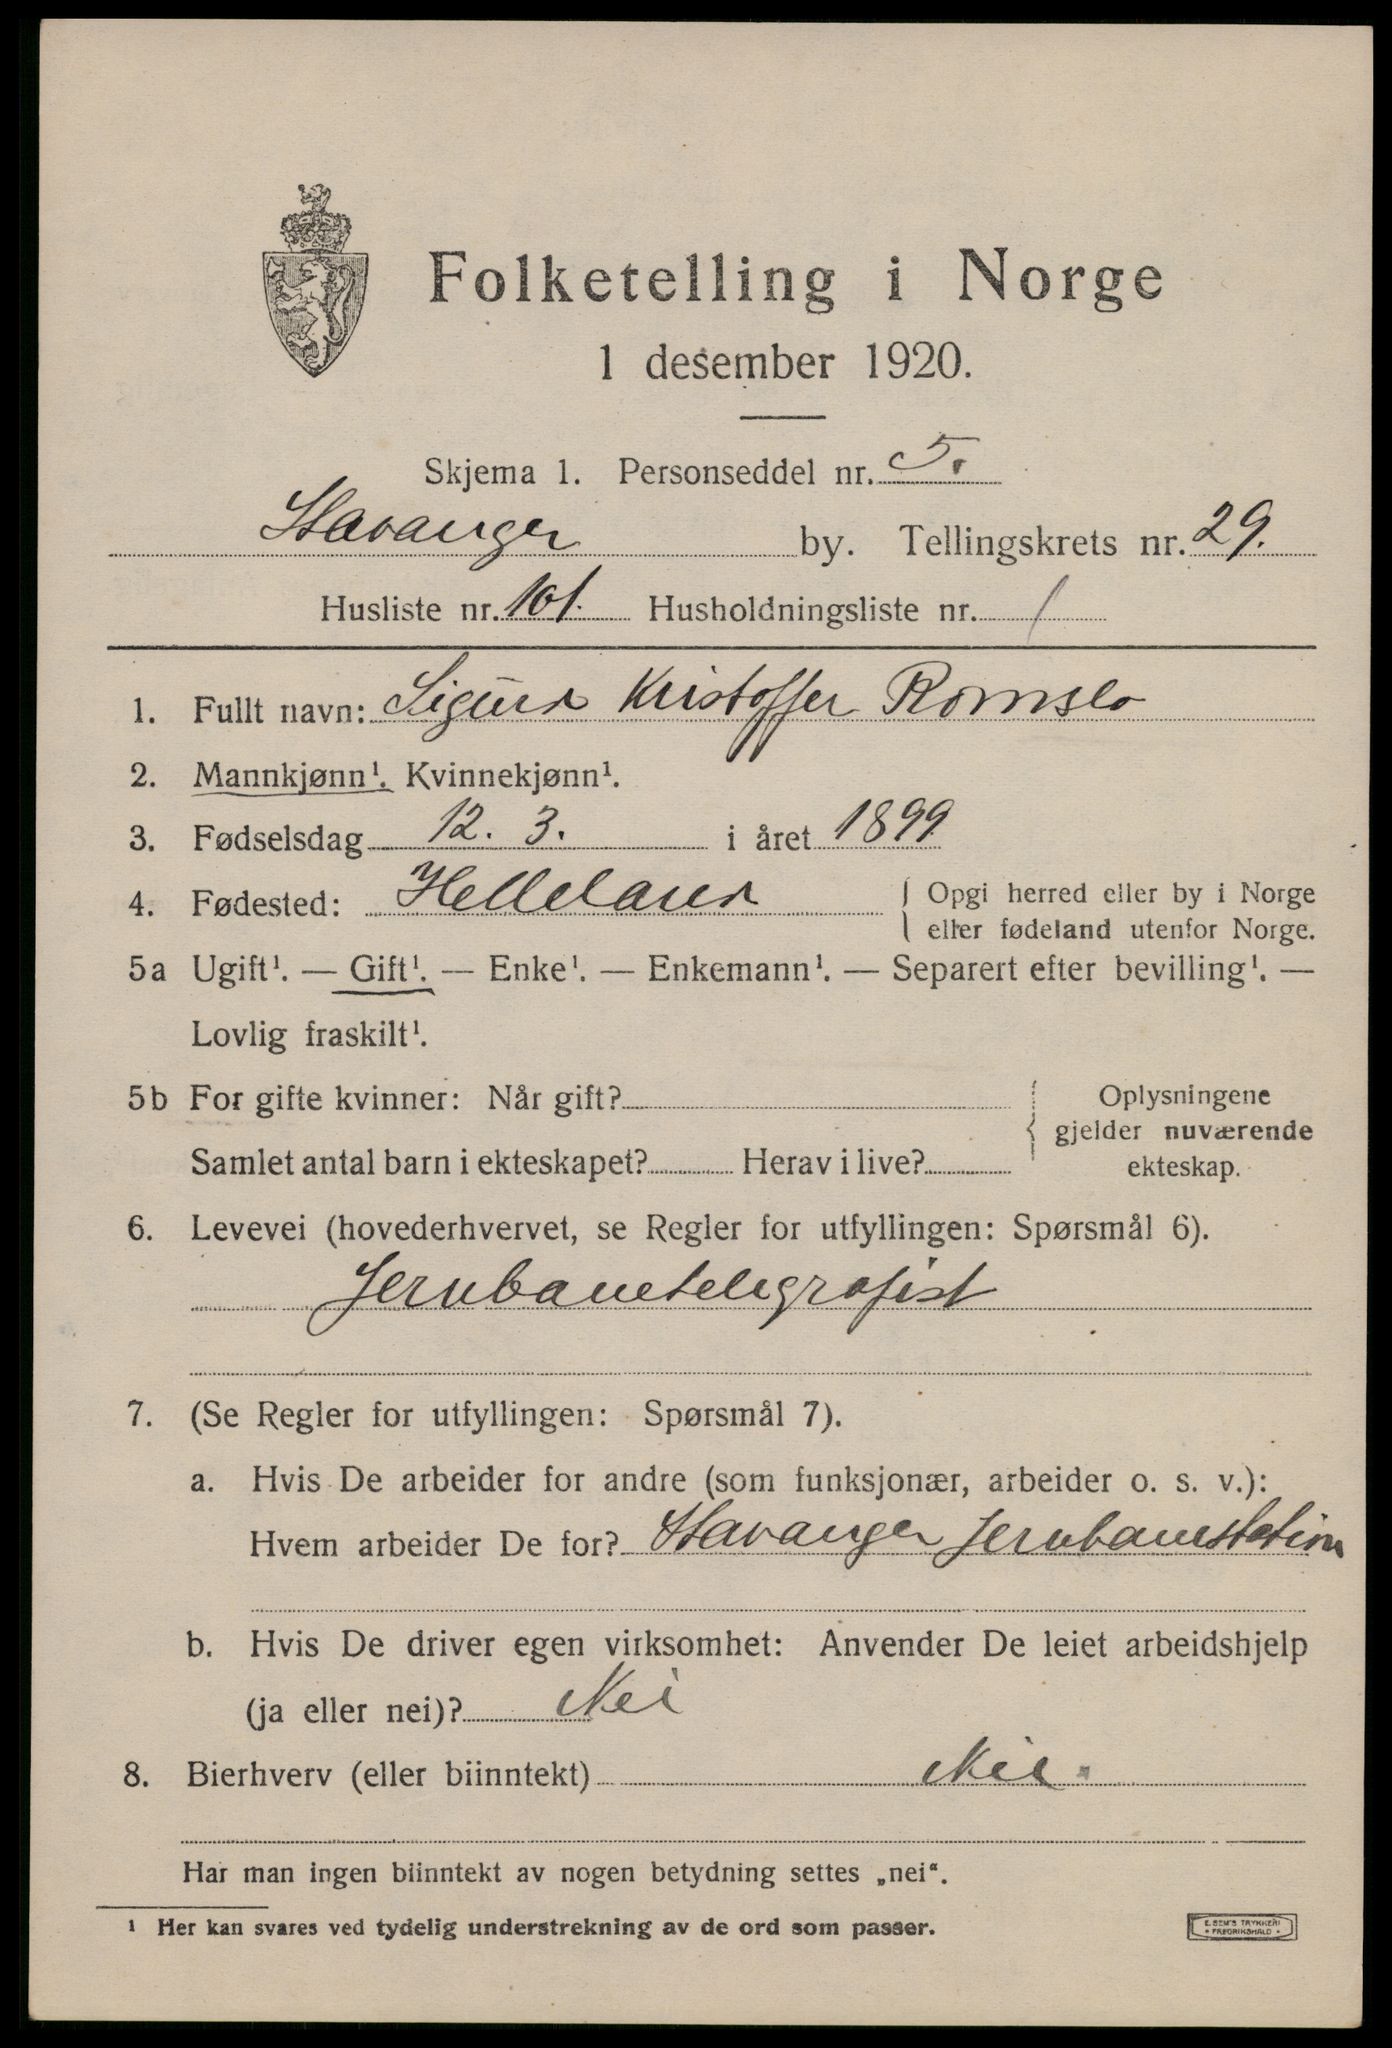 Folketelling i Norge
1 desember 1920.
Skjema 1. Personseddel nr. 5.
Stavanger by. Tellingskrets nr. 29.
Husliste nr. 101. Husholdningsliste nr. 1
1. Fullt navn: Sigurd Kristoffer Romslo
2. Mannkjønn¹. Kvinnekjønn¹.
3. Fødselsdag 12. 3. i året 1899
4. Fødested: Helleland { Opgi herred eller by i Norge
eller fødeland utenfor Norge.
5a Ugift¹. — Gift¹. — Enke¹. — Enkemann¹. — Separert efter bevilling¹. —
Lovlig fraskilt¹.
5b For gifte kvinner: Når gift? { Oplysningene
gjelder nuværende
Samlet antal barn i ekteskapet? Herav i live? ekteskap.
6. Levevei (hovederhvervet, se Regler for utfyllingen: Spørsmål 6).
Jernbanetelegrafist
7. (Se Regler for utfyllingen: Spørsmål 7).
a. Hvis De arbeider for andre (som funksjonær, arbeider o. s. v.):
Hvem arbeider De for? Stavanger Jernbanestation
b. Hvis De driver egen virksomhet: Anvender De leiet arbeidshjelp
(ja eller nei)? Nei
8. Bierhverv (eller biinntekt) Nei.
Har man ingen biinntekt av nogen betydning settes „nei“.
¹ Her kan svares ved tydelig understrekning av de ord som passer.
E. SEM'S TRYKKERI
• FREDRIKSHALD •